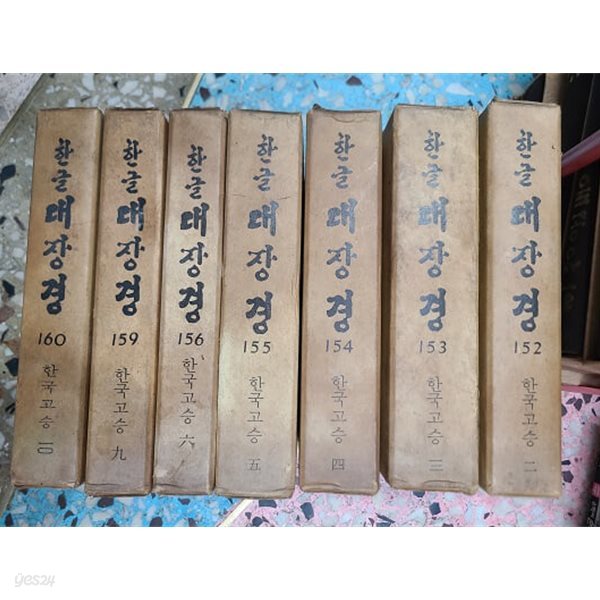 한글대장경
160
한국고승
一〇
한글대장경
159
한국고승
九
한글대장경
156
한국고승
六
한글대장경
155
한국고승
五
한글대장경
154
한국고승
四
한글대장경
153
한국고승
三
한글대장경
152
한국고승
二
yes24